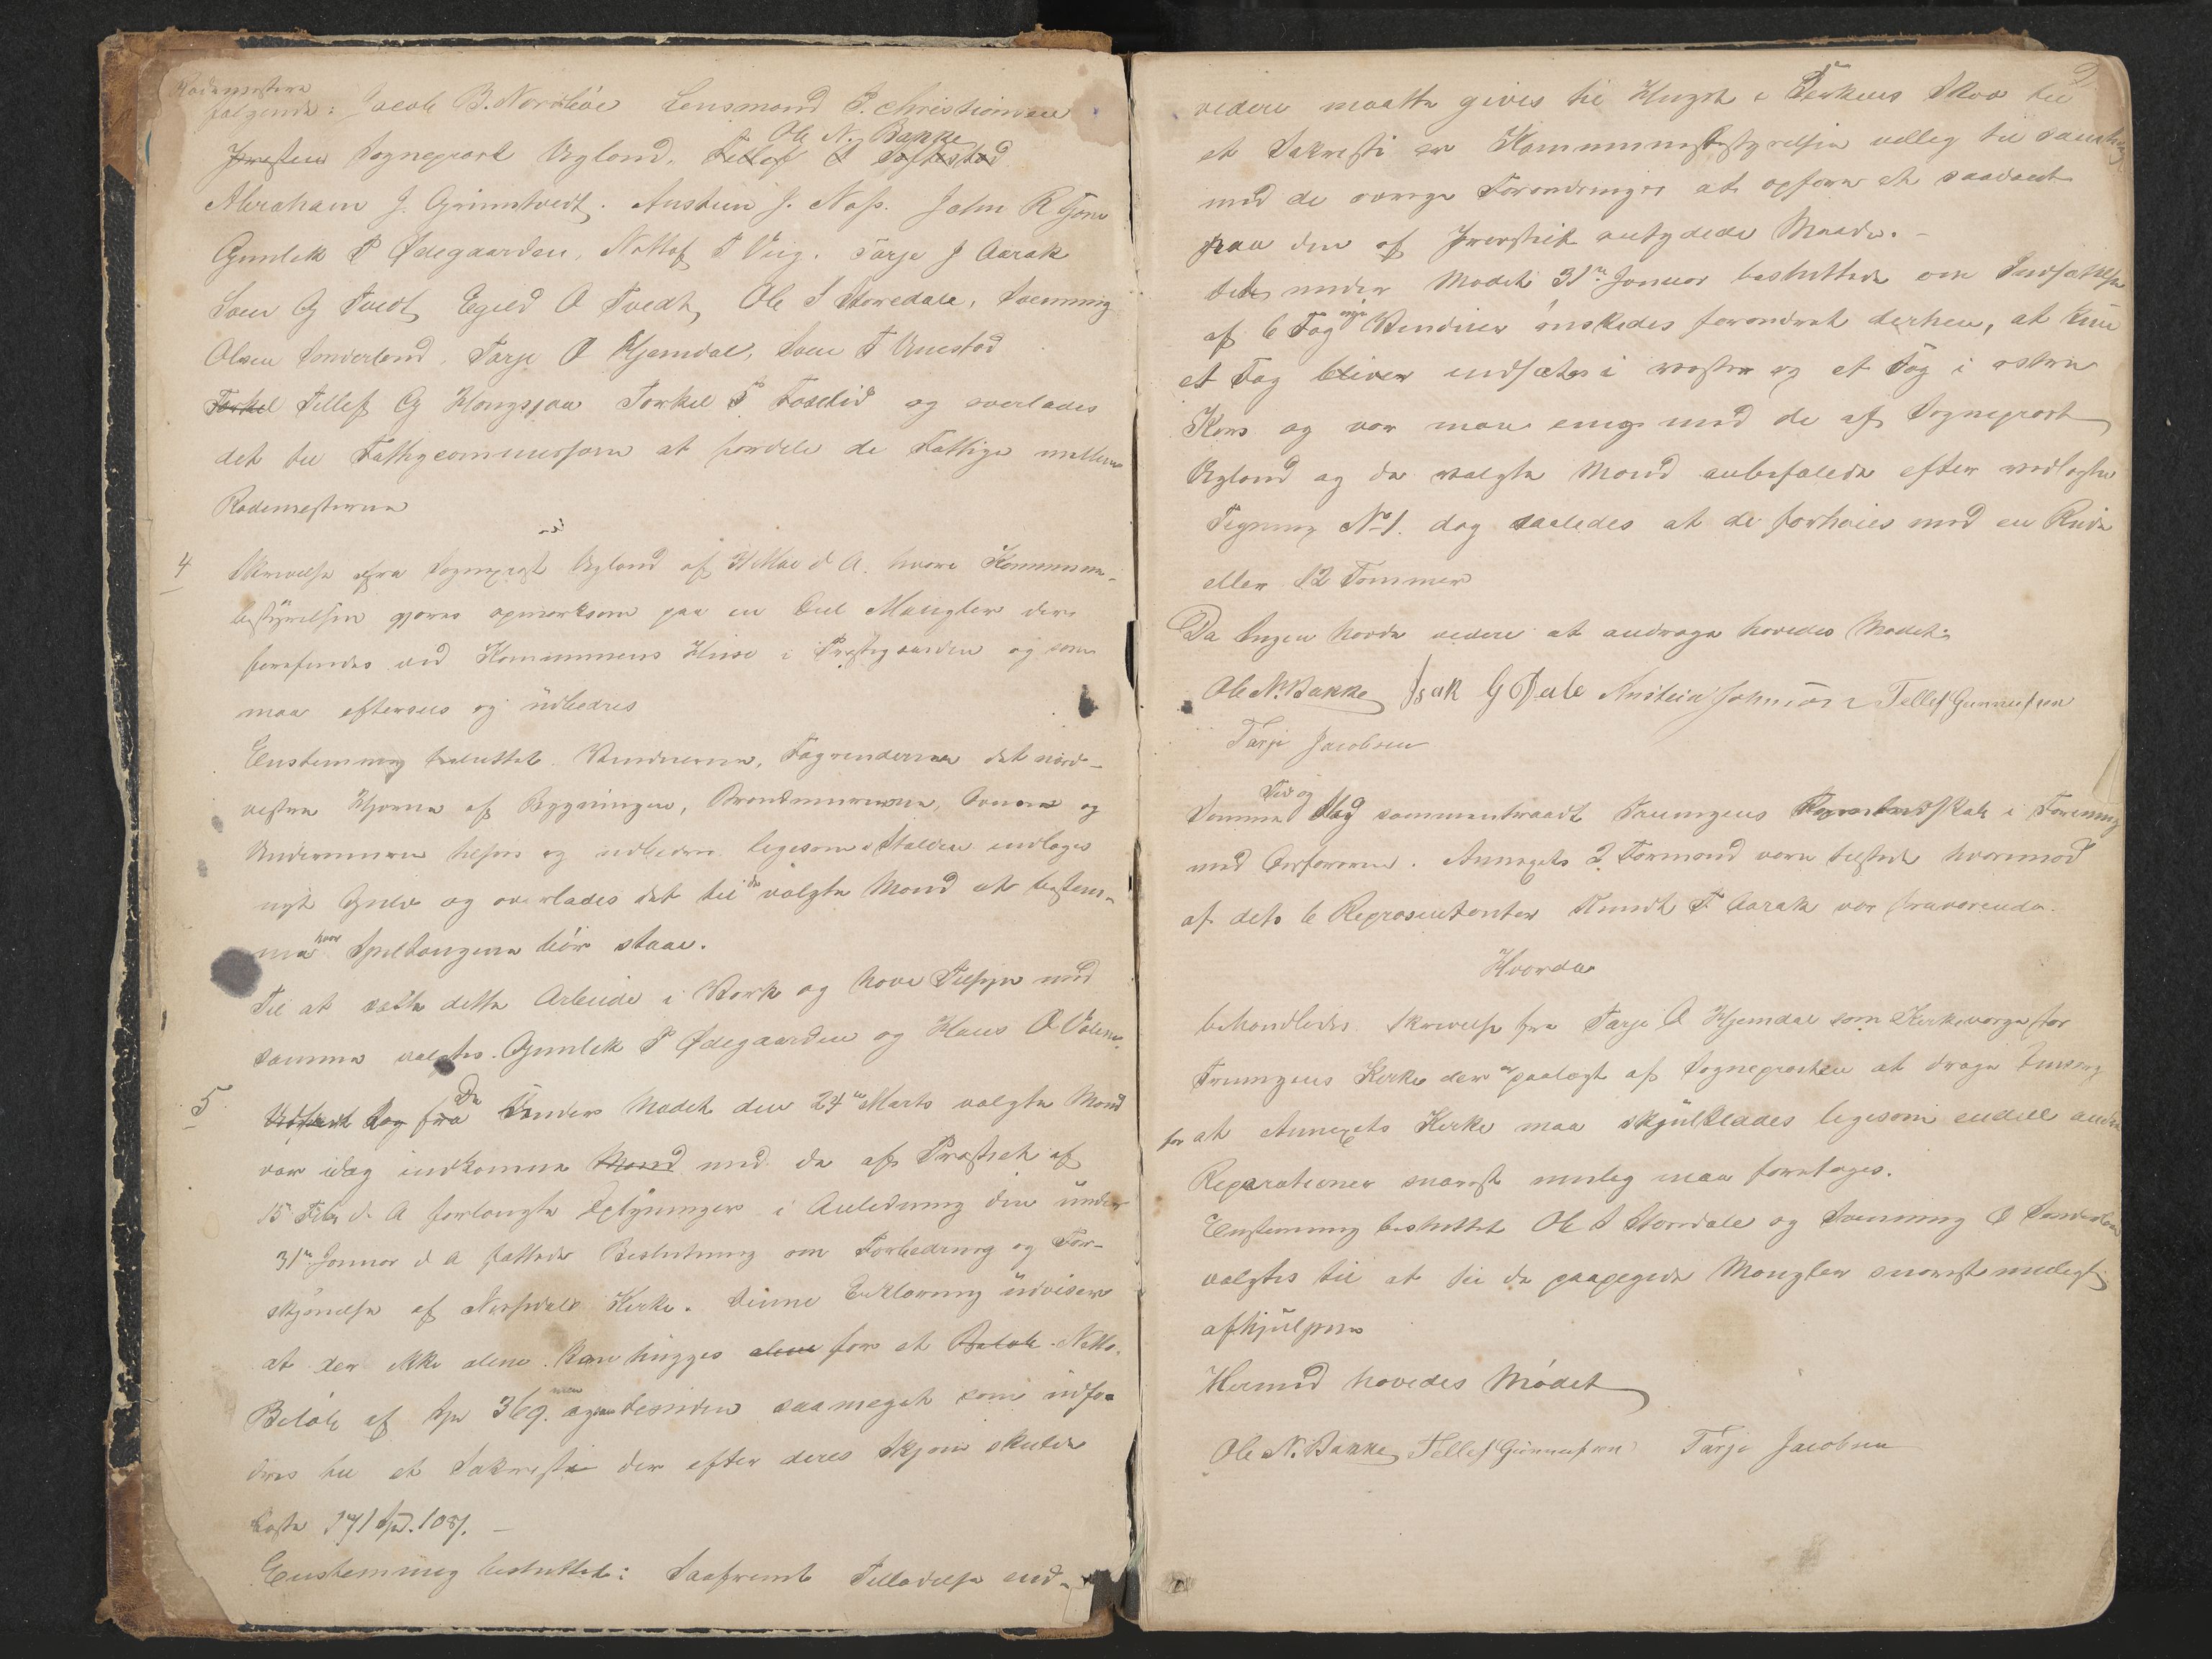 Rodemestere
følgende: Jacob B. Nordbøe Lensmand P. Christiansen
Ole N. Bakke
Presten Sogneprost Ugland. Tellef
Abraham J. Grimstvedt. Anstein J. Næss. John R Tjøne
Gunlek P Ødegaarden, Nottof T Vig. Tarje J Aarak
Sven G Tvedt, Egeld O Tvedt, Ole S Storedale, Svenning
Olsen Sønderland, Tarje O Hjemdal, Sven T Unestad
Torkel Tellef G Kongsjaa Torkel T Fosslid og overlades
det til Fattigcommissionen at fordele de Fattige mellem
Rodemesterne
4 Skrivelse fra Sogneprost Ugland af 31 Mai d A. hvori Kommune-
bestyrelsen gjøres opmærksom paa en Del Mangler der
forefindes ved Kommunens Huse i Præstegaarden og som
maa eftersees og udbedres
Enstemmig besluttet. Vinduerne, Tagrenderne det nord-
vestre Hjørne af Bygningen, Brandmurerne, Ovnene og
Undermuren tilsees og udbedres ligesom i Stalden indlægges
nyt Gulv og overlades det til de valgte Mænd at bestem-
me hvor Spiltaugene bør staae.
Til at sætte dette Arbeide i Værk og have Tilsyn med
samme valgtes. Gunlek P Ødegaarden og Hans O
5 Da Under Mødet den 24de Marts valgte Mænd
var idag indkomne Mænd med de af Præstiet af
15 Febr d. A forlangte Oplysninger i Anledning den under
31te Januar d A fattede Beslutning om Forbedring og For-
skjønnelse af Nissedals Kirke. Denne Erklæring udviser
at der ikke alene kan hugges alene for et Beløb Netto
Beløb af Spd 369. men desuden saameget som udfor-
dres til et Sakresti der efter deres Skjøn skulde
koste 141 Spd. 108 s. –
Enstemmig besluttet: Saafremt Tilladelse end-
videre maatte gives til Hugst i Kirkens Skov til
et Sakresti er Kommunebestyrelsen villig til samtidig
med de øvrige Forandringer at opføre et saadant
paa den af Præstiet antydede Maade. –
det under Mødet 31te Januar besluttede om Indsættelse
af 6 Fag nye Vinduer ønskedes forandret derhen, at kun
et Fag bliver indsat i vestre og et Fag i østre
Kors og var man enig med de af Sogneprost
Ugland og de valgte Mænd anbefalede efter vedlagte
Tegning No 1. dog saaledes at de forhøies med en Rude
eller 12 Tommer
Da Ingen havde videre at andrage hævedes Mødet
Ole N. Bakke Isak G Dale Anstein Johnsen Tellef Gunnufsen
Tarje Jacobsen
Tid og
Samme Sted sammentraadt Treungens Formandskab i Forening
med Ordføreren. Annexets 2 Formænd vare tilstede hvorimod
af dets 6 Repræsentanter Knudt T Aarak var fraværende.
Hvorda
behandledes Skrivelse fra Tarje O Hjemdal som Kirkeværge for
Treungens Kirke der er paalagt af Sogneprosten at drage Omsorg
for at Annexets Kirke maa skjulklædes ligesom endell andre
Reparationer snarest mulig maa foretages.
Enstemmig besluttet Ole S Storedale og Svenning O Sønderland
valgtes til at see de paapegede Mangler snarest muligt
afhjulpne
Hermed hævedes Mødet
Ole N. Bakke Tellef Gunnufsen Tarje Jacobsen